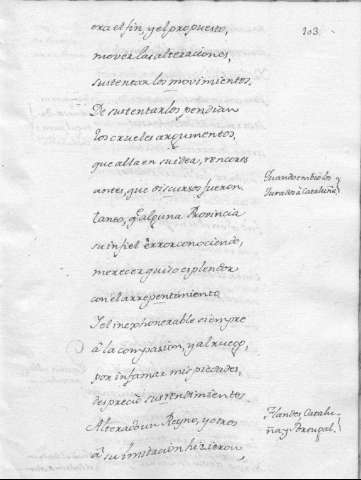 era el fin, y el propuesto,
103
mover las alteraciones,
sustentar los movimientos.
De sustentarlos pendian
los crueles argumentos,
que alla en su idea, rencores
antes, que discursos fueron
Quando embio los
Jurados à Cataluña
tanto, q alguna Provincia
su infiel error conociendo,
merecer quiso esplendor
con el arrepentimiento
Y el inexhonerable siempre
à la compasion, y al ruego,
por infamar mis piedades,
desprecio sus rendimientos.
Alterado un Reyno, y otros
Flandes, Catalu-
ña y Portugal.
à su imitacion hizieron,